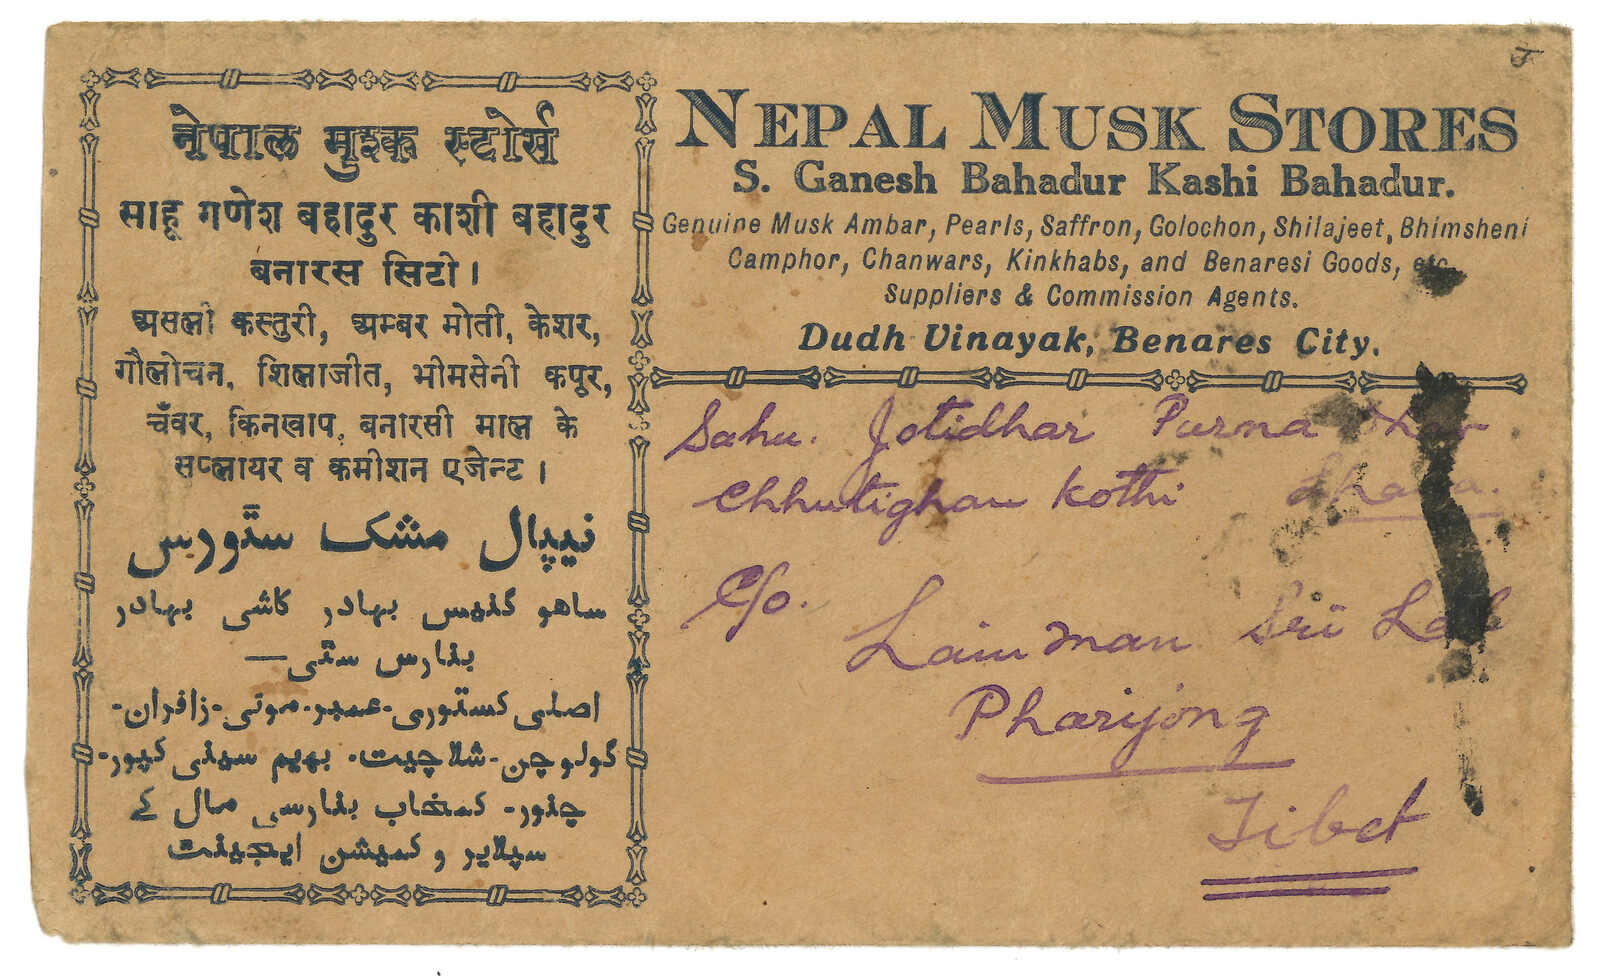 नेपाल मुश्क स्टोर्स
साहू गणेश बहादुर काशी बहादुर
बनारस सिटी।
असली कस्तुरी, अम्बर मोती, केशर,
गौलोचन, शिलाजीत, भीमसेनी कपुर,
चँवर, किनखाप, बनारसी माल के
सप्लायर व कमीशन एजेन्ट।
نیپال مشک سٹورس
ساهو گنیس بہادر کاشی بہادر
بنارس سٹی—
اصلی کستوری-عمبر-موتی-زافران-
گولوچن-شلاجیت-بهیم سینی کپور-
چنور-کمخاب بنارسی مال کے
سپلایر و کمیشن ایجینٹ
NEPAL MUSK STORES
S. Ganesh Bahadur Kashi Bahadur.
Genuine Musk Ambar, Pearls, Saffron, Golochon, Shilajeet, Bhimsheni
Camphor, Chanwars, Kinkhabs, and Benaresi Goods, etc.
Suppliers & Commission Agents.
Dudh Vinayak, Benares City.
Sahu. Jotidhar Purna Dhar
Chhutighau Kothi Lhasa.
C/o. Lainman Sri Lal
Pharijong
Tibet